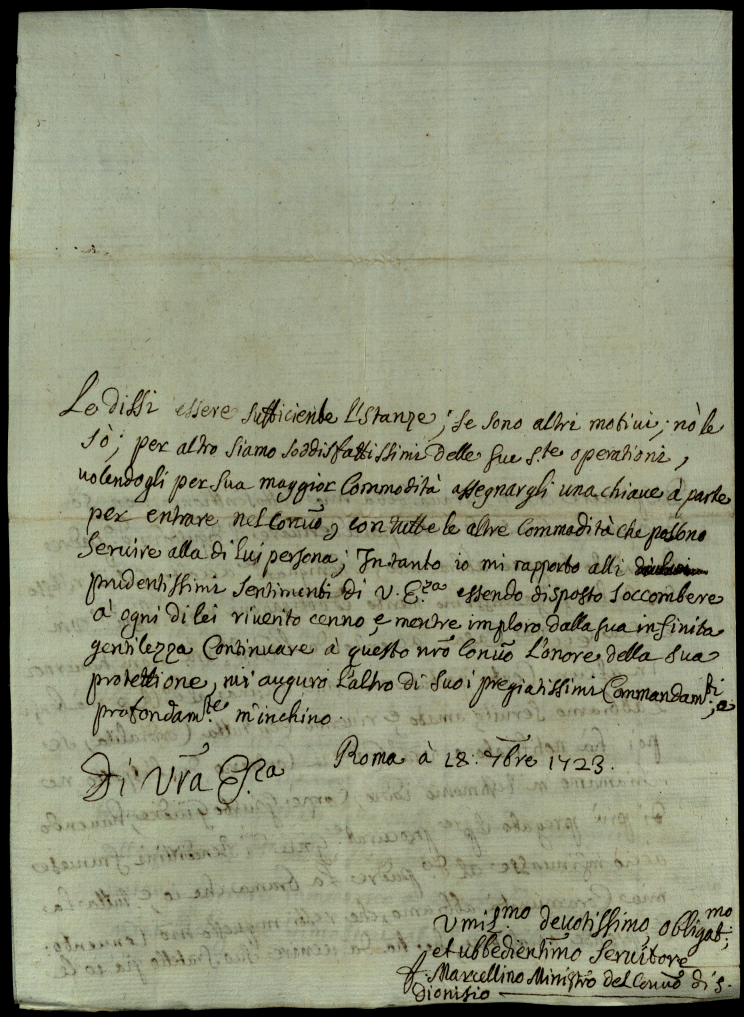 Le dissi essere sufficiente l'istanze; se sono altri motivi, nò le
sò; per altro siamo soddisfattissimi delle sue s.te operationi,
volendogli per sua maggior Commodità assegnargli una chiave à parte
per entrare nel Conũo, con tutte le altre Commodità che possono
servire alla di lui persona; In tanto io mi rapporto alli
prudentissimi sentimenti di V. E.za essendo disposto soccombere
à ogni di lei riverito cenno, e mentre imploro dalla sua infinita
gentilezza Continuare à questo nrõ Conũo l'onore della sua
protettione, mi auguro l'altro di suoi pregiatissimi Commandam.ti, e
profondam.te m'inchino.
Di Vrã E.za Roma à 18. 7bre 1723.
Umis.mo devotissimo, obbligat.mo,
et ubbedientimo servitore
F. Marcellino Ministro del Conũo di S.
Dionisio